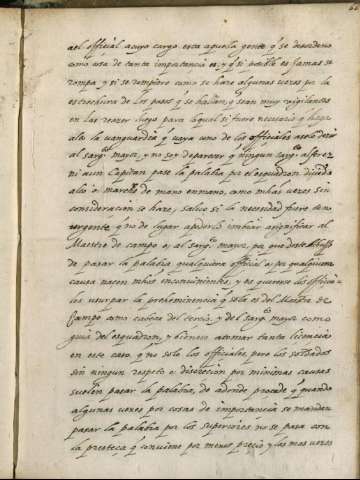 ael official acuyo cargo esta aquella gente q̃ se desordeno
como cosa de tanta importancia es, y q̃ si posible es Jamas se
rompa, y si se rompiere como se haze algunas vezes por la
estrechura de los pasos q̃ se hallan, q̃ sean muy vigilantes
en las rearer luego para lo qual si fuere necesario q̃ haga
alto la vanguardia q̃ vaya uno de los officiales a
al sargto mayor, y no se ha de parar q̃ ningun sargto alferez
ni aun Capitan pase la palabra por el esquadron diziendo
alto o marche de mano en mano, como muchas vezes sin
consideracion se haze, salvo si la necesidad fuere tan
urgente q̃ no de lugar apoderlo imbiar asignificar al
Maestre de campo o, al sargto mayor, por que deste
de pasar la palabra qualquiera official o, por qualquiera
causa nacen muchos inconvinientes, y es quererse los officia
les usurpar la preheminencia q̃ solo es del Maestro de
Campo como cabeça del tercio, y del sargto mayor como
guia del esquadron, y vienen a tomar tanta licencia
en este caso q̃ no solo los officiales, pero los soldados
sin ningun respeto o discrecion por minimas causas
suelen pasar la palabra, de adonde procede q̃ quando
algunas vezes por cosas de importancia se manda
pasar la palabra por los superiores no se pasa con
la presteça q̃ conviene por menos precio y las mas vezes